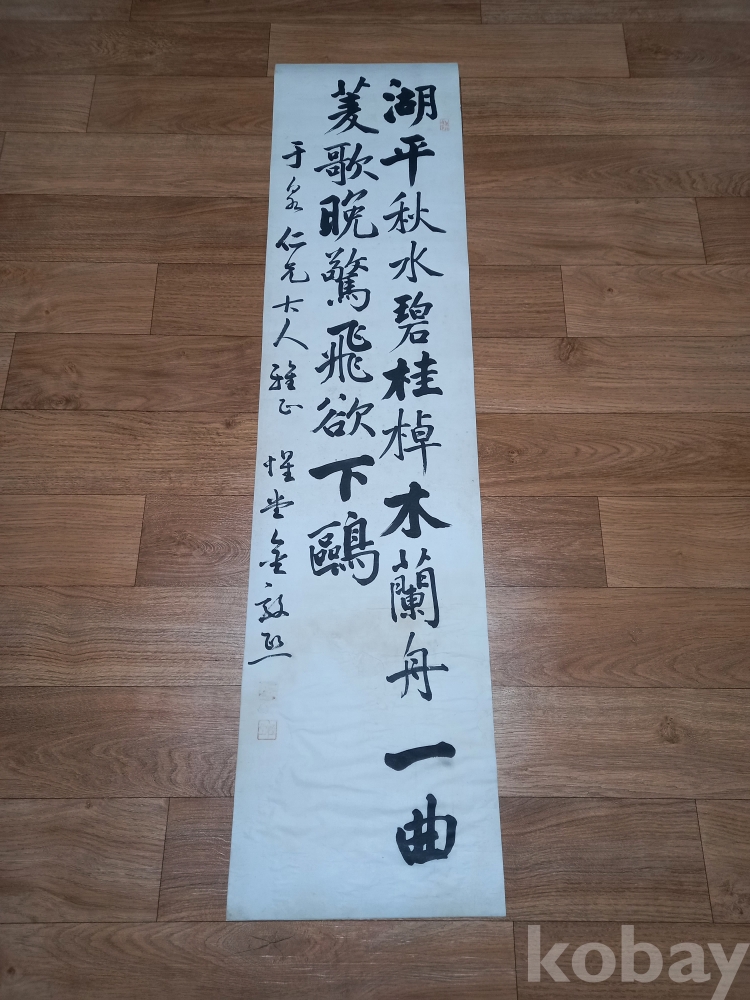 湖平秋水碧桂棹木蘭舟一曲
菱歌晚驚飛欲下鷗
于泉仁兄大人雅正 惺堂金敦熙
kobay